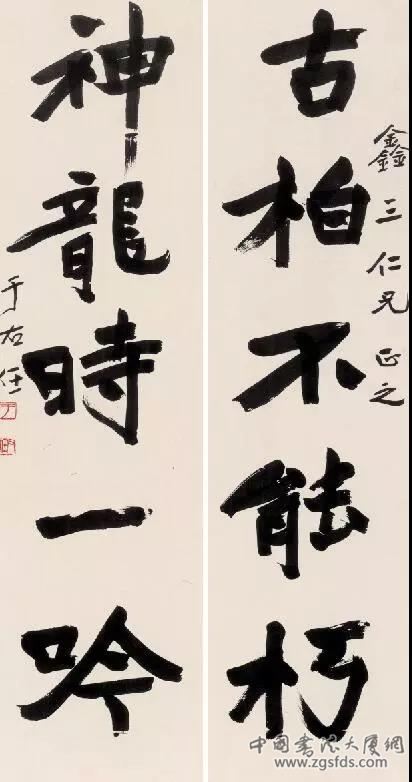 古柏不能朽
鑫三仁兄 正之
神龍時一吟
于右任
中国书法大厦網
www.zgsfds.com